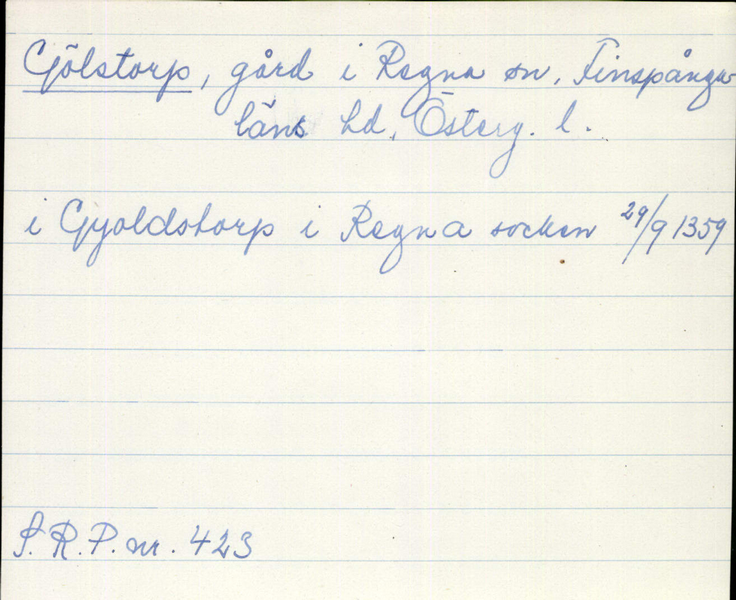 Gölstorp, gård i Regna sn, Finspånga
läns hd, Österg. l.
i Gyoldstorp i Regna socken 29/9 1359
S. R. P. nr. 423